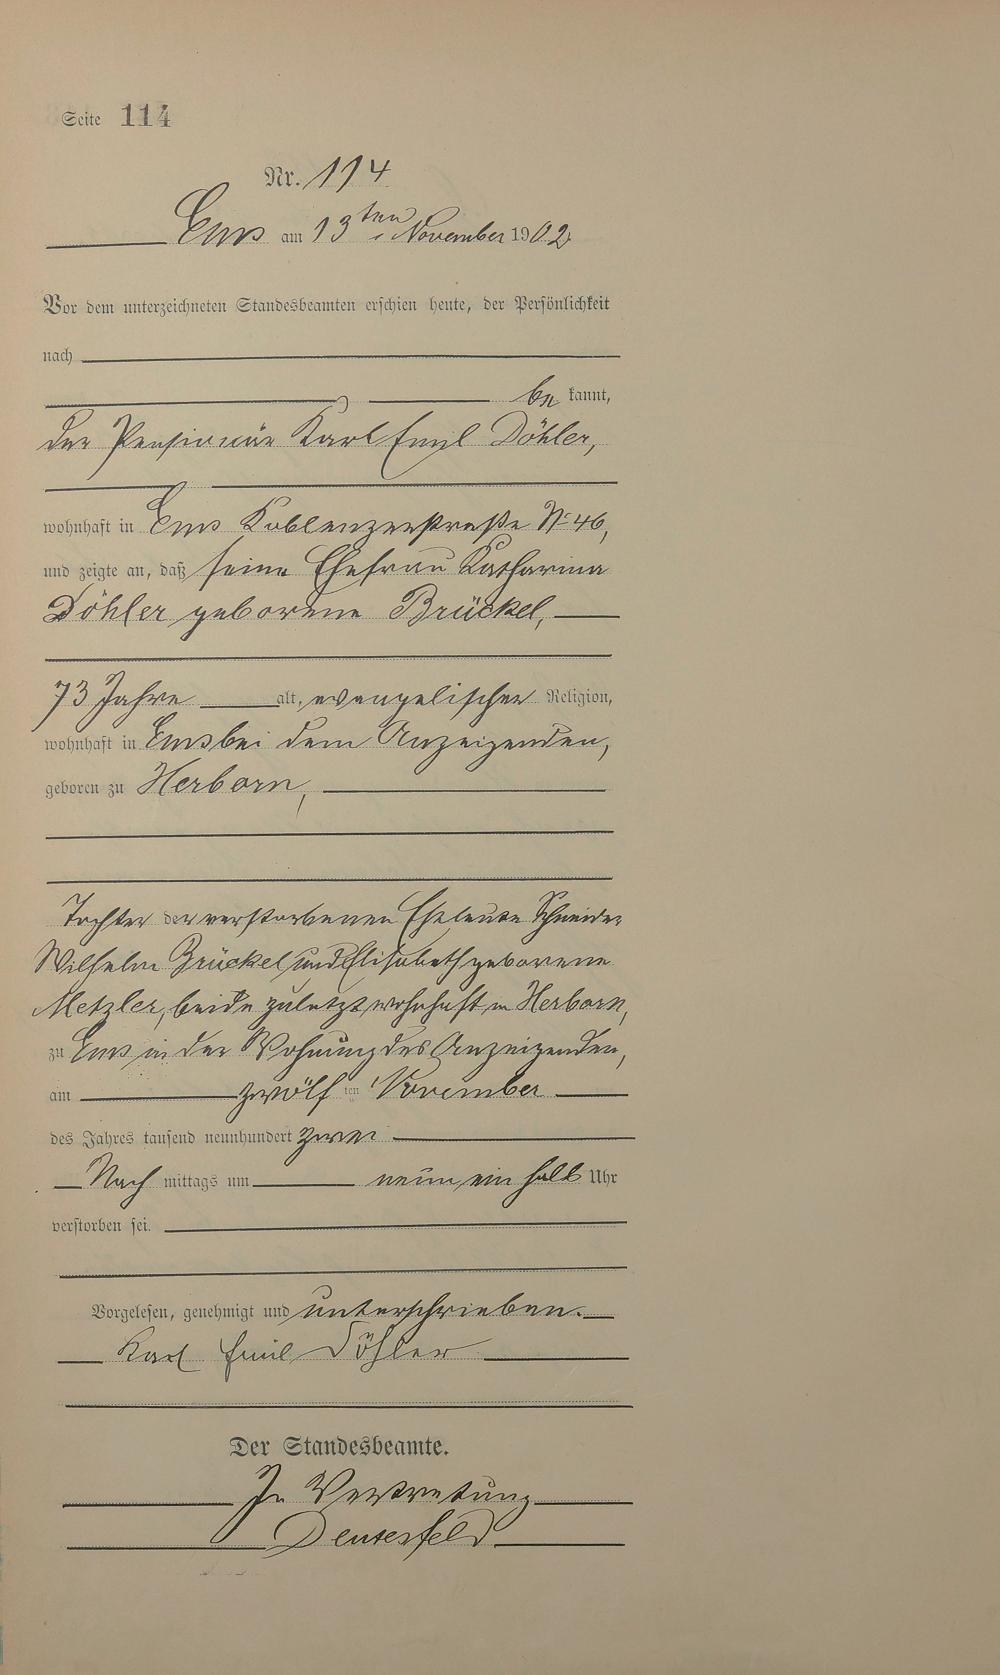 Seite 114
Nr. 114
Ems am 13ten November 1902
Vor dem unterzeichneten Standesbeamten erschien heute, der Persönlichkeit
nach
be kannt,
der Pensionär Karl Emil Döhler,
wohnhaft in Ems Koblenzerstraße № 46,
und zeigte an, daß seine Ehefrau Katharina
Döhler geborene Brückel,
73 Jahre alt, evangelischer Religion,
wohnhaft in Ems bei dem Anzeigenden,
geboren zu Herborn,
Tochter der verstorbenen Eheleute Schneider
Wilhelm Brückel und Elisabeth geborene
Metzler, beide zuletzt wohnhaft in Herborn,
zu Ems in der Wohnung des Anzeigenden,
am zwölf ten November
des Jahres tausend neunhundert zwei
Nach mittags um neun ein halb Uhr
verstorben sei.
Vorgelesen, genehmigt und unterschrieben.
Karl Emil Döhler
Der Standesbeamte.
In Vertretung